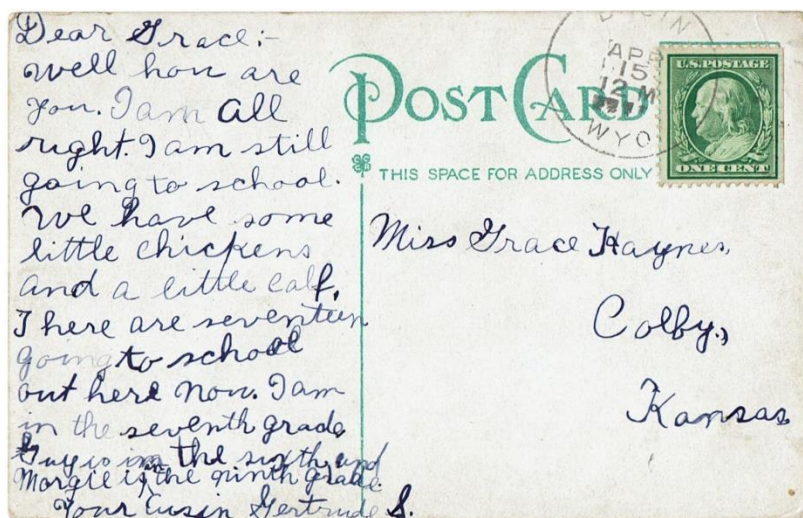 Dear Grace:-
Well how are
you. I am all
right. I am still
going to school.
We have some
little chickens
and a little calf.
There are seventeen
going to school
out here now. I am
in the seventh grade
Guy is in the sixth and
Margie is in the ninth grade.
Your Cusin Gertrude S.
POST CARD
THIS SPACE FOR ADDRESS ONLY
APR
15
12 M
WYO
U.S. POSTAGE
ONE CENT
Miss Grace Haynes,
Colby,
Kansas